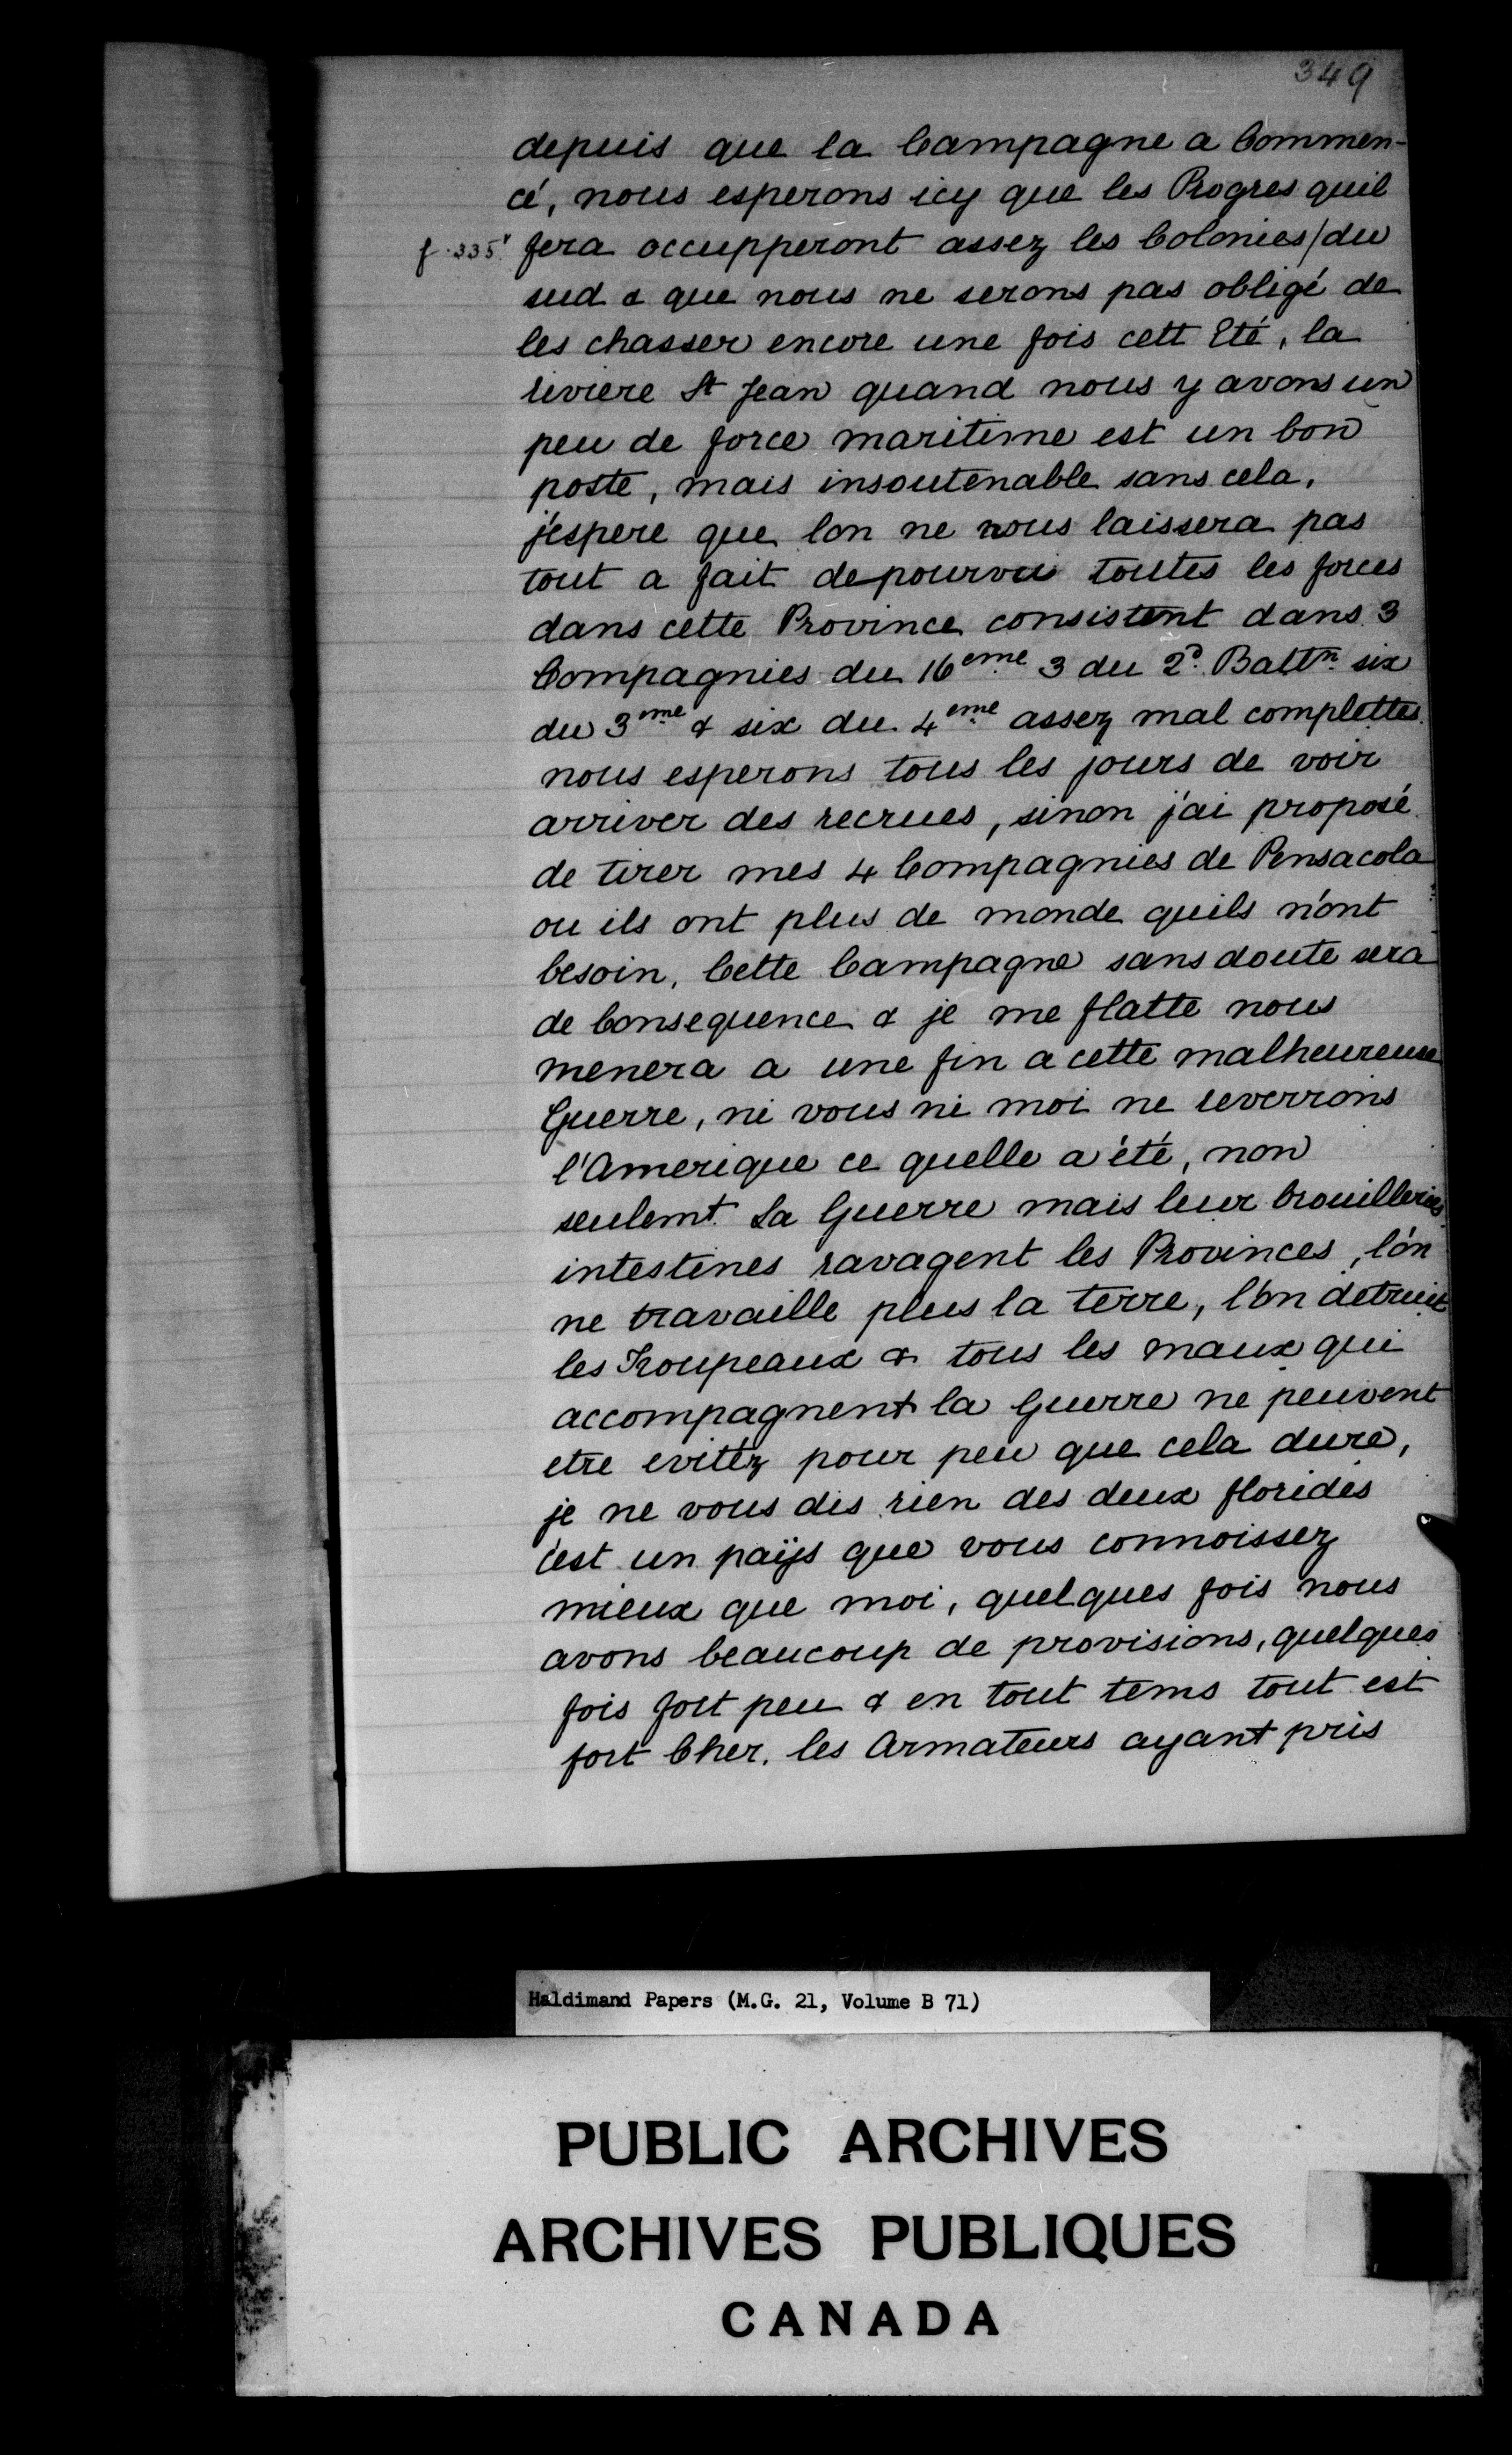 349
depuis que la Campagne a Commen-
cé, nous esperons icy que les Progres quil
f. 335v fera occupperont assez les Colonies/du
sud & que nous ne serons pas obligé de
les chasser encore une fois cett Eté, la
riviere St Jean quand nous y avons un
peu de force maritime est un bon
poste, mais insoutenable sans cela,
j'espere que lon ne nous laissera pas
tout a fait depourvu toutes les forces
dans cette Province consistent dans 3
Compagnies du 16eme 3 du 2d. Battn. six
du 3eme & six du 4eme assez mal complettes
nous esperons tous les jours de voir
arriver des recrues, sinon j'ai proposé
de tirer mes 4 Compagnies de Pensacola
ou ils ont plus de monde quils n'ont
besoin, Cette Campagne sans doute sera
de Consequence & je me flatte nous
menera a une fin a cette malheureuse
Guerre, ni vous ni moi ne reverrons
l'Amerique ce quelle a été, non
seulemt. La Guerre mais leur brouilleries
intestines ravagent les Provinces, l'on
ne travaille plus la terre, l'on detruit
les Troupeaux & tous les maux qui
accompagnent la Guerre ne peuvent
etre evitéz pour peu que cela dure,
je ne vous dis rien des deux florides
c'est un païjs que vous connoissez
mieux que moi, quelques fois nous
avons beaucoup de provisions, quelques
fois fort peu & en tout tems tout est
fort Cher. les Armateurs ayant pris
Haldimand Papers (M.G. 21, Volume B 71)
PUBLIC ARCHIVES
ARCHIVES PUBLIQUES
CANADA